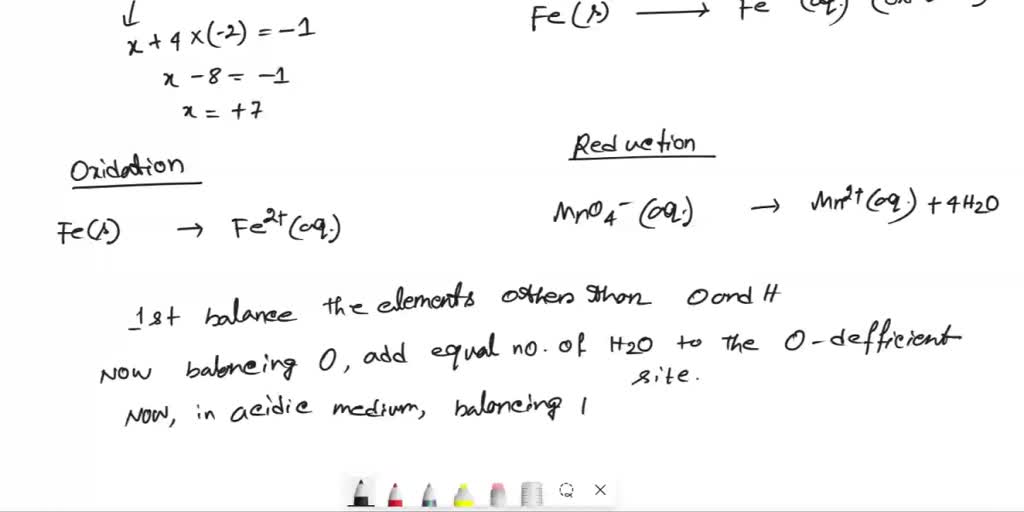 x + 4 × (-2) = -1
x - 8 = -1
x = +7
Fe(s) → Fe (aq)
Oxidation
Reduction
Fe(s) → Fe²⁺(aq.)
MnO₄⁻ (aq.) → Mn²⁺(aq.) + 4H₂O
1st balance the elements others than O and H
Now balancing O, add equal no. of H2O to the O-defficient site.
Now, in acidic medium, balancing